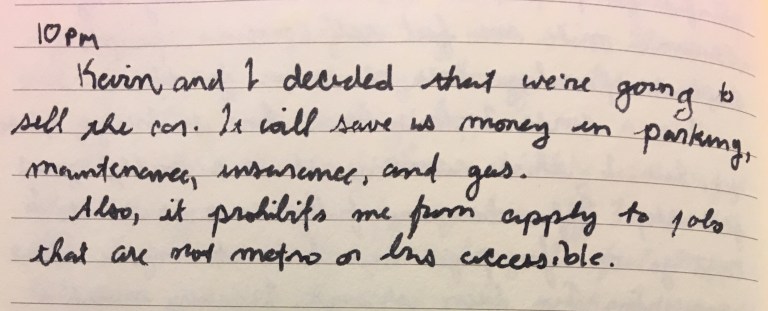 10 PM
Kevin and I decided that we're going to
sell the car. It will save us money in parking,
maintenance, insurance, and gas.
Also, it prohibits me from apply to jobs
that are not metro or bus accessible.